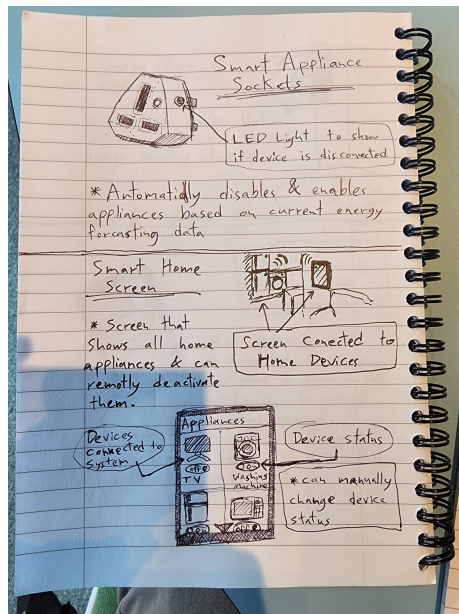 Smart Appliance
Sockets
LED Light to show
if device is disconected
* Automatidly disables & enables
appliances based on current energy
forcasting data
Smart Home
Screen
* Screen that
shows all home
appliances & can
remotly deactivate
them.
Screen Conected to
Home Devices
Appliances
Devices
connected to
system
Device status
off
TV
on
Washing
machine
* can manually
change device
status
off
off